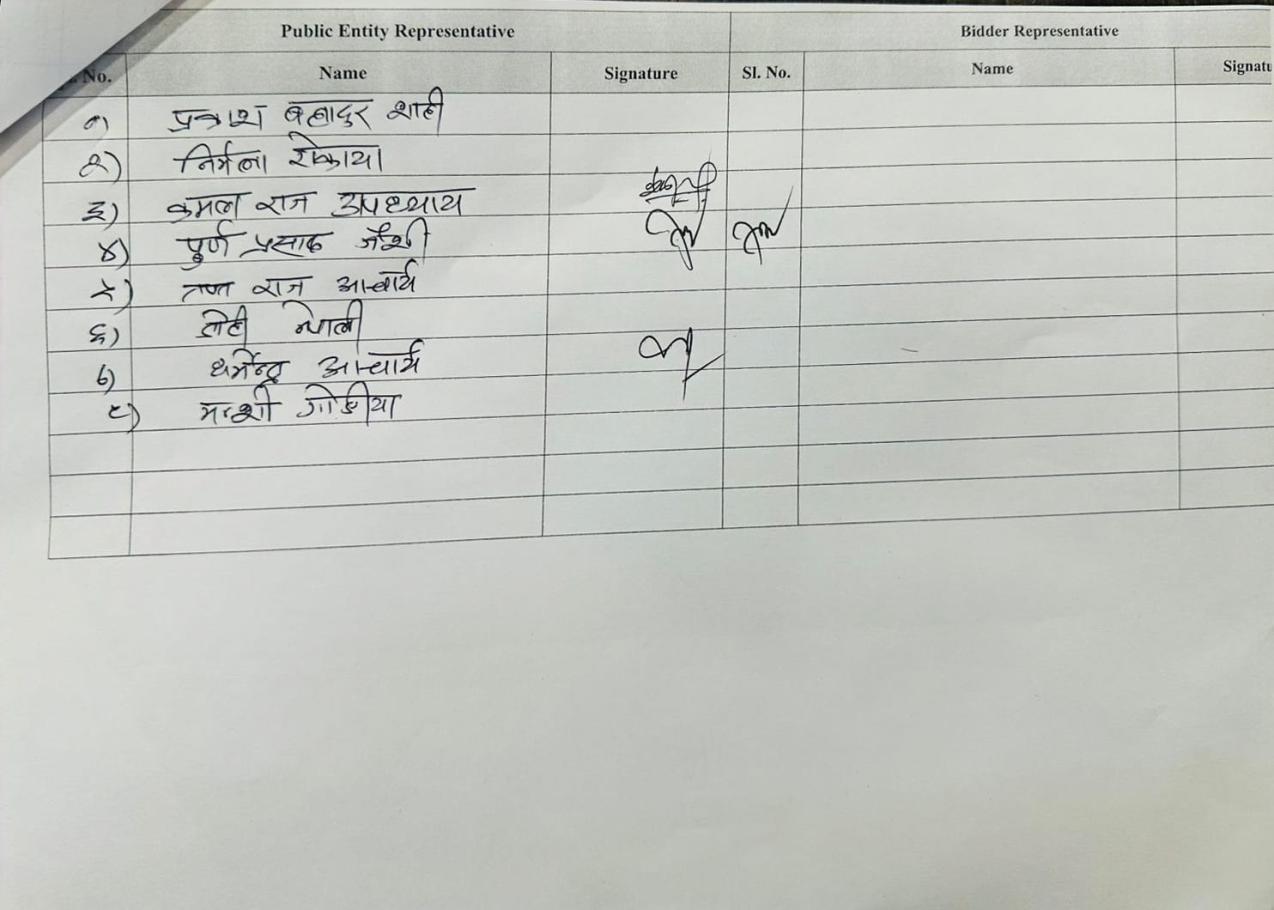 Public Entity Representative Bidder Representative
No. Name Signature Sl. No. Name Signatu
१) प्रकाश बहादुर शाही
२) निर्मला रोकाया
३) कमल राज उपाध्याय
४) पुर्ण प्रसाद जैशी
५) राज आचार्य
६)
७) धर्मेन्द्र आचार्य
८)